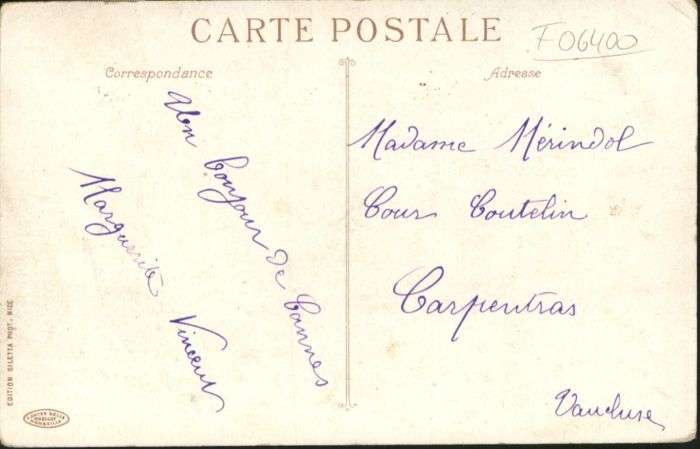 CARTE POSTALE
F06400
Correspondance
Adresse
Un bonjour de Cannes
Marguerite Vincent
Madame Mérindol
Cour Coutelin
Carpentras
Vaucluse
EDITION GILETTA PHOT. NICE